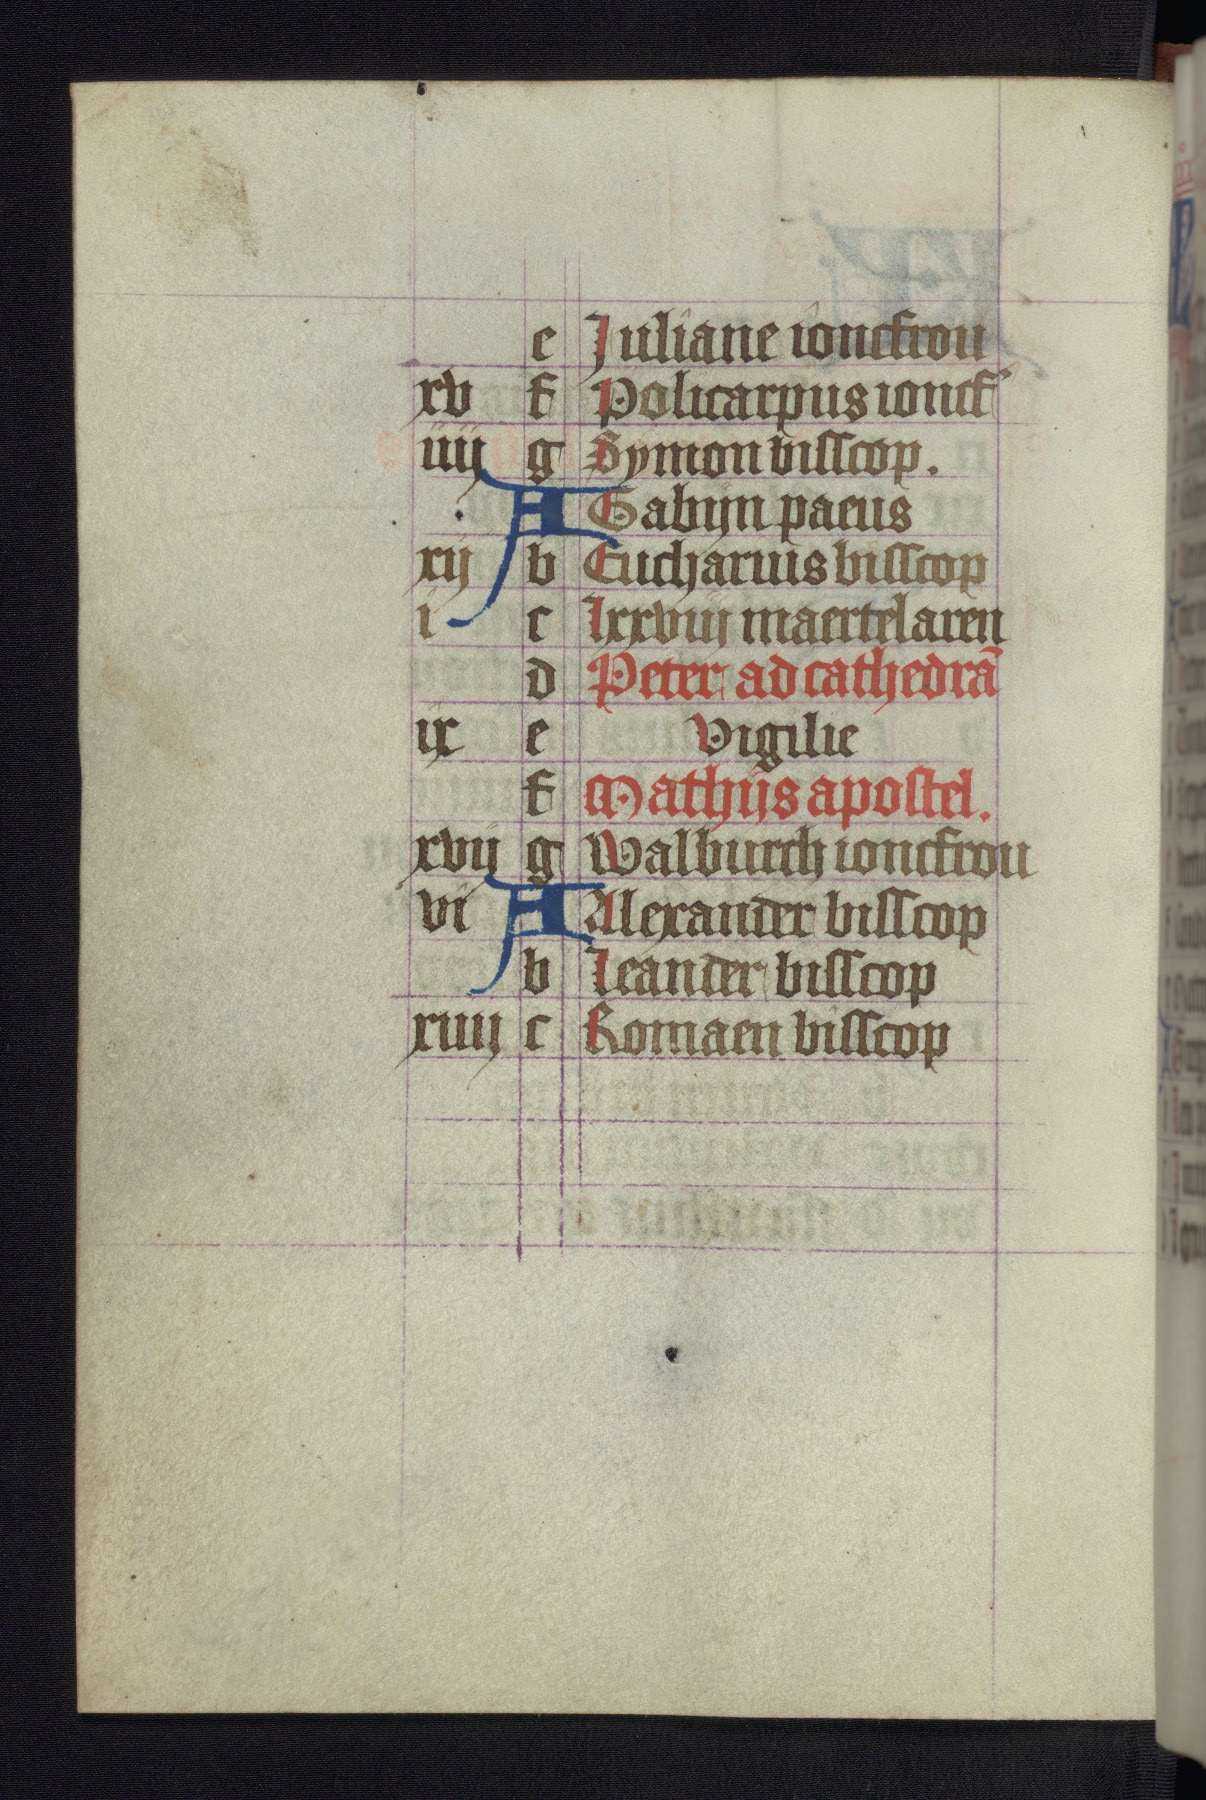 e Juliane ioncfrou
xv f Policarpus ioncf'
iiij g Symon bisscop.
A Gabijn paeus
xij b Eucharius bisscop
i c lxxviij maertelaren
d Peter ad cathedrā
ix e Vigilie
f Mathijs apostel.
xvij g Walburch ioncfrou
vi A Alexander bisscop
b Leander bisscop
xiiij c Romaen bisscop